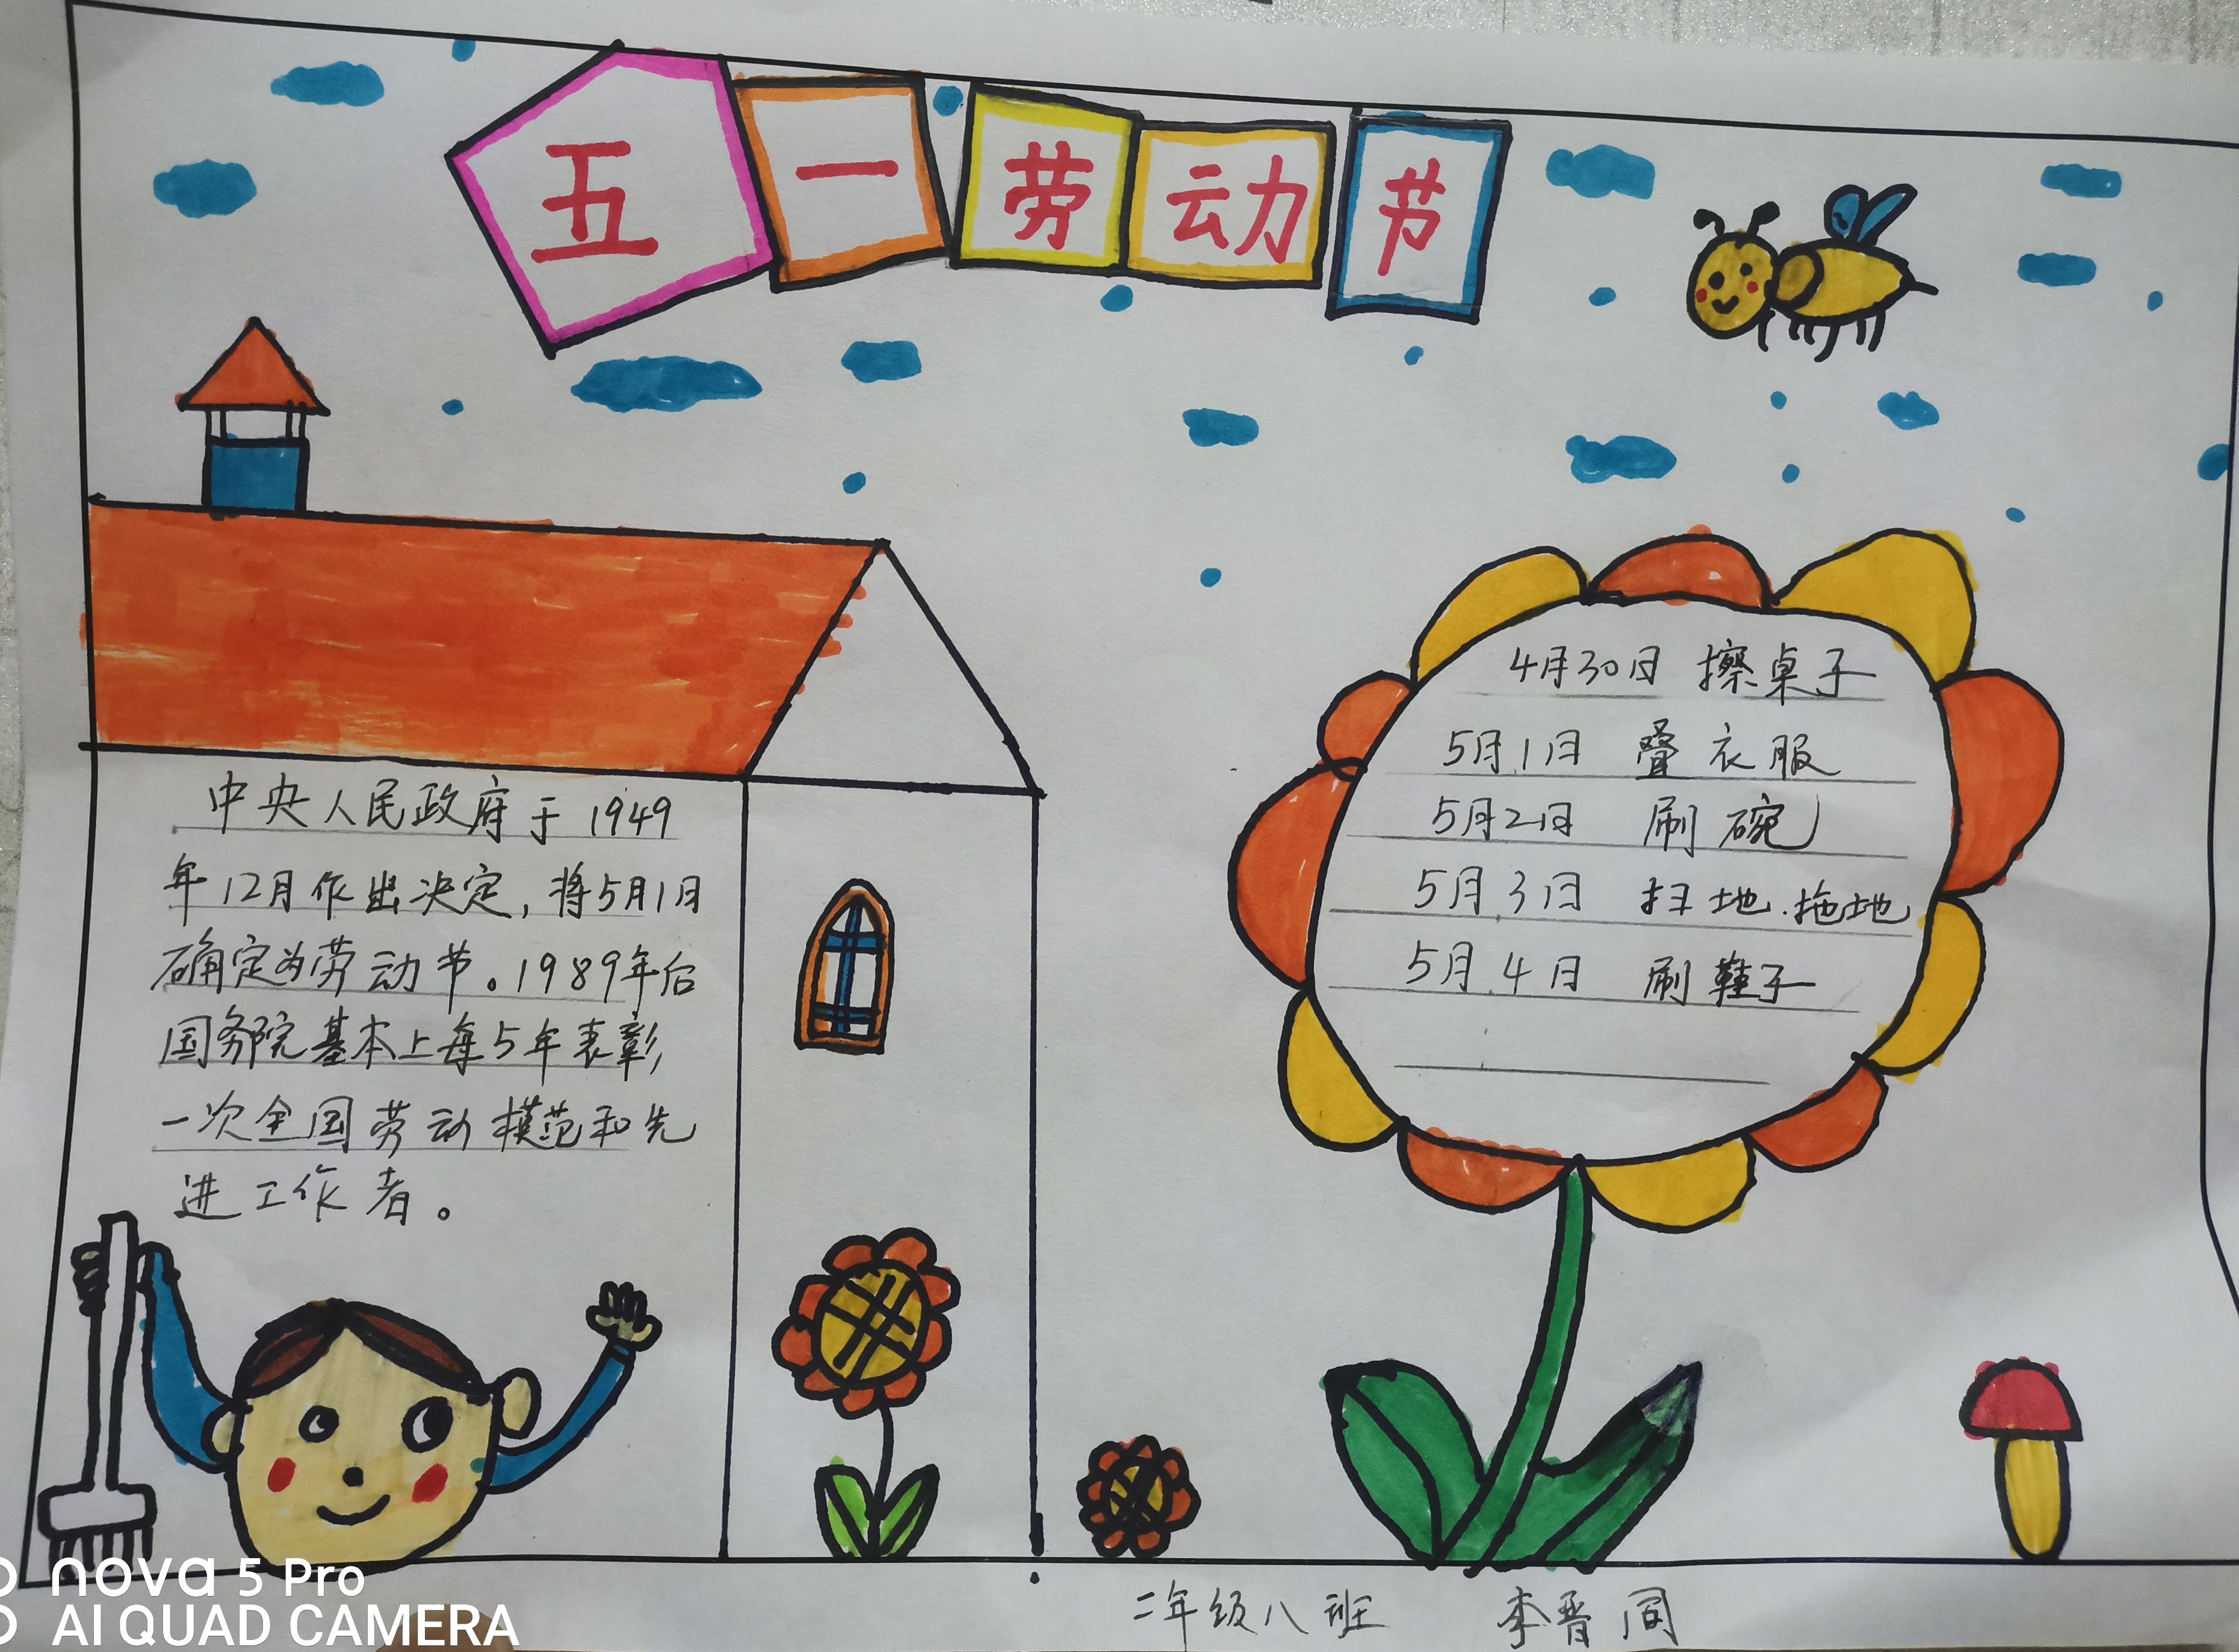 五一劳动节
中央人民政府于1949
年12月作出决定,将5月1日
确定为劳动节。1989年后
国务院基本上每5年表彰
一次全国劳动模范和先
进工作者。
4月30日 擦桌子
5月1日 叠衣服
5月2日 刷碗
5月3日 扫地.拖地
5月4日 刷鞋子
二年级八班 李晋同
nova 5 Pro
AI QUAD CAMERA